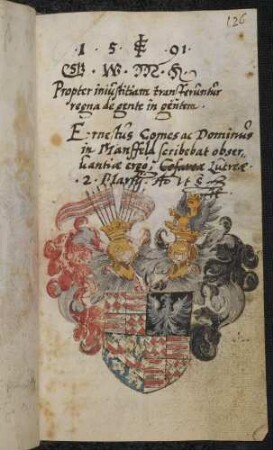 126
1 5 9 1
W M
Propter iniustitiam transferuntur
regna de gente in gentem.
Ernestus Comes ac Dominus
in Mansfeld scribebat obser-
vantiæ ergo
2 Martij